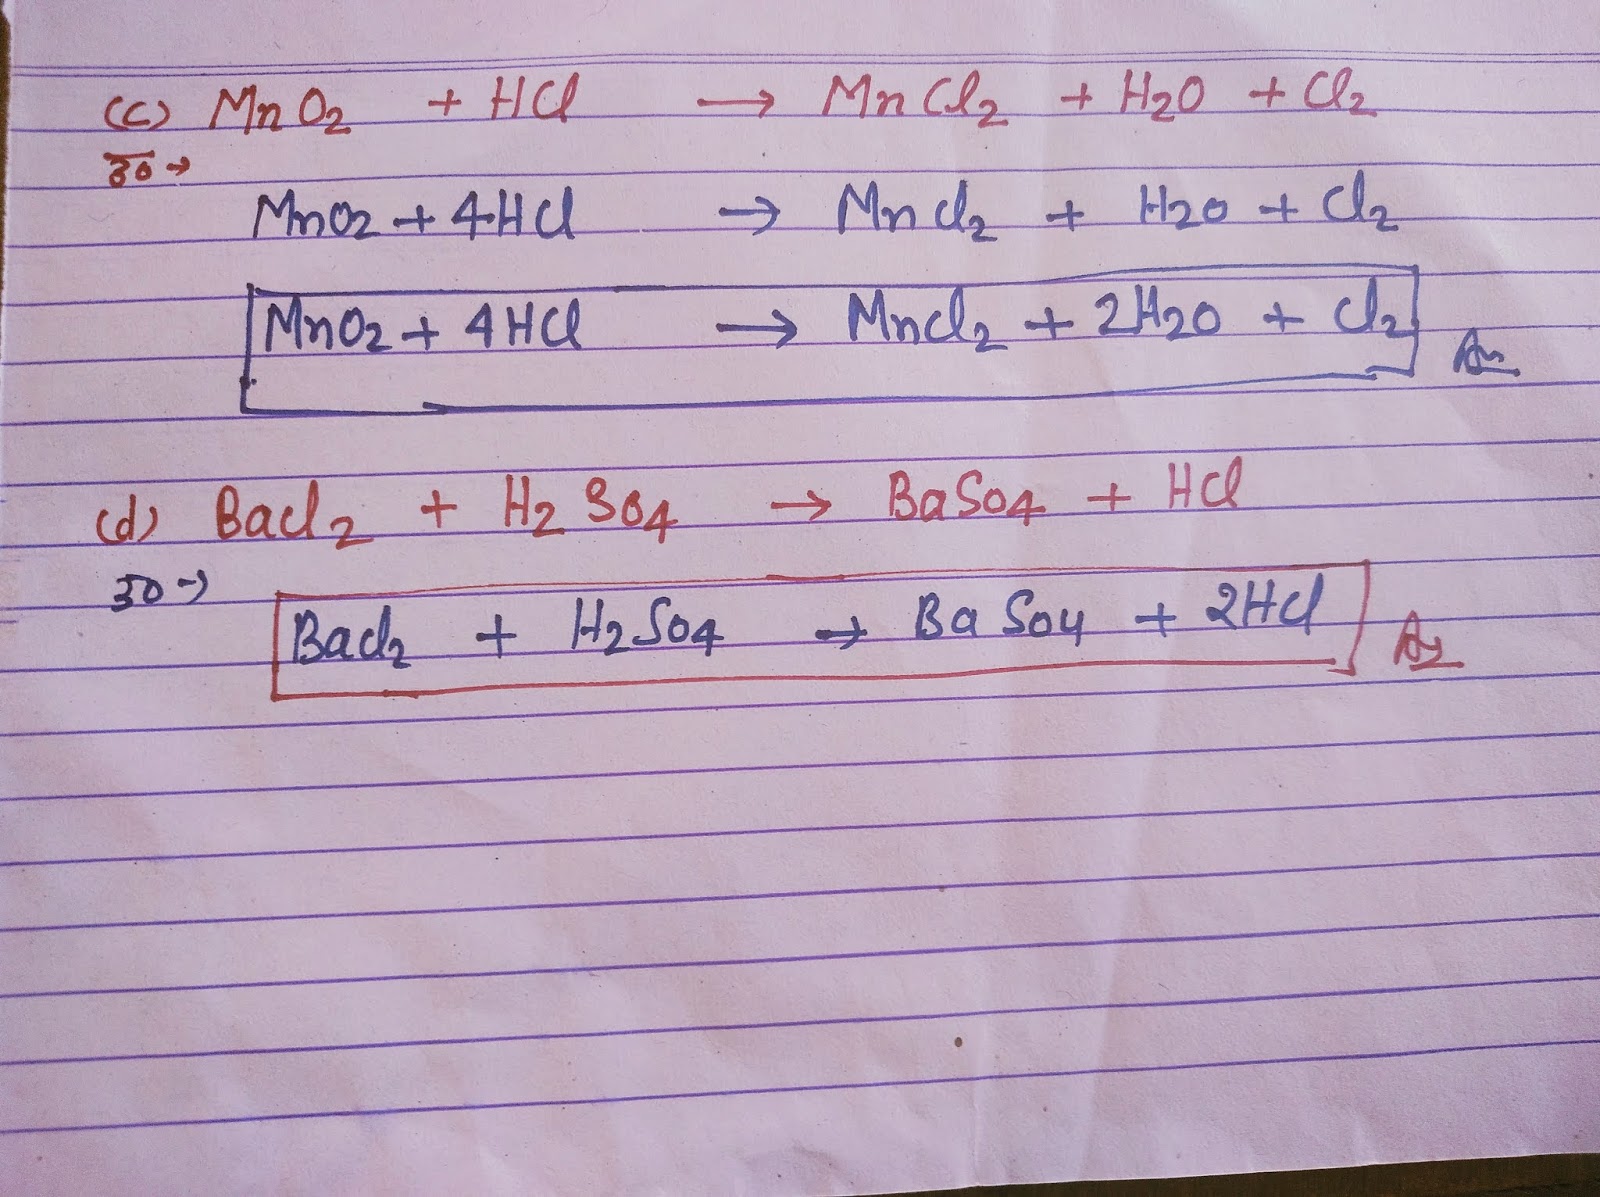 (c) MnO2 + HCl → MnCl2 + H2O + Cl2
उ० →
MnO2 + 4HCl → MnCl2 + H2O + Cl2
MnO2 + 4HCl → MnCl2 + 2H2O + Cl2 Ans
(d) BaCl2 + H2SO4 → BaSO4 + HCl
उ० →
BaCl2 + H2SO4 → BaSO4 + 2HCl